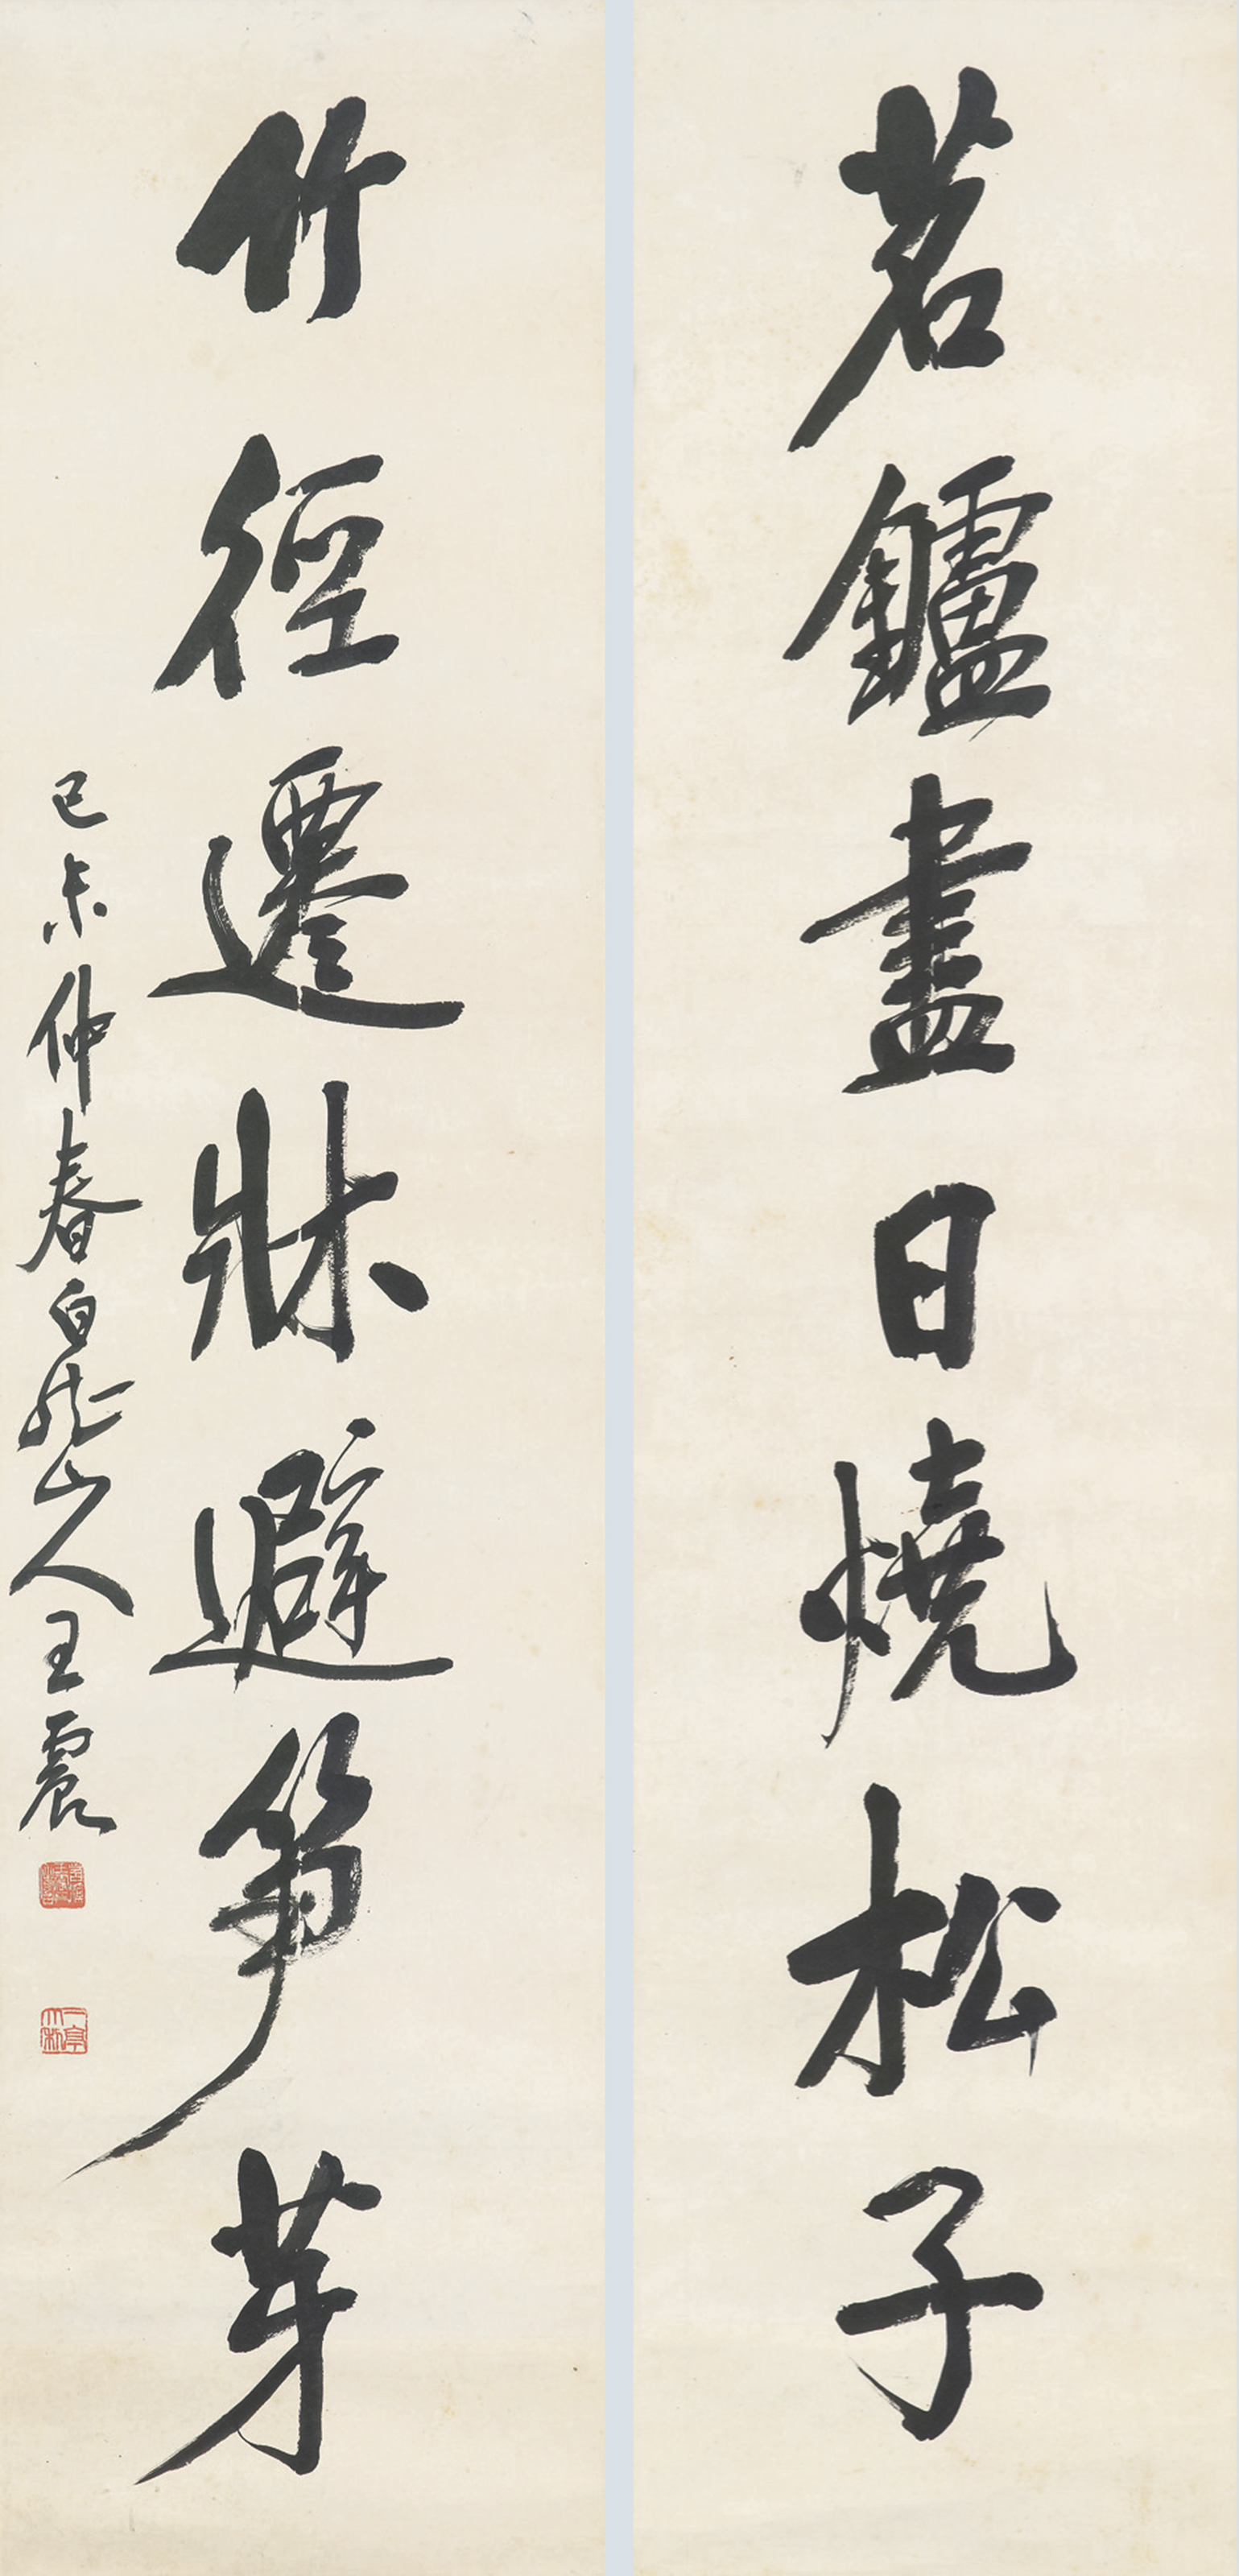 茗鑪盡日燒松子
竹徑遷牀避筍芽
己未仲春白龍山人王震